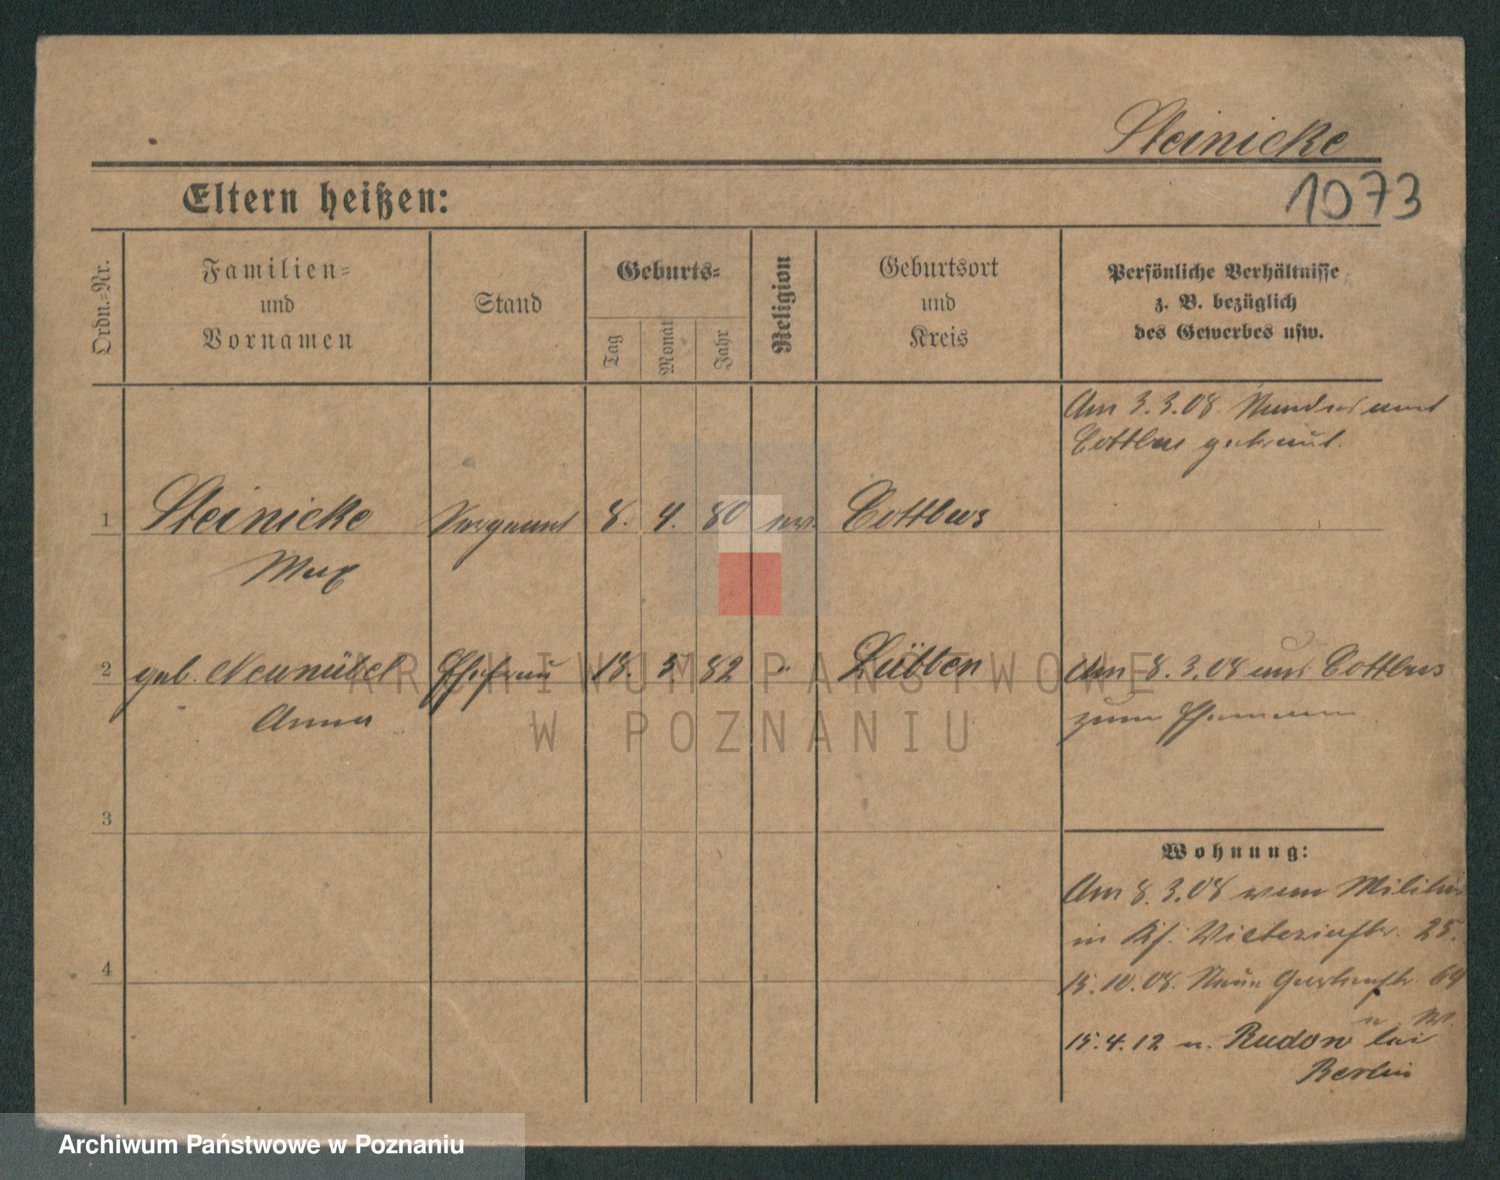 Steinicke
1073
Eltern heißen:
Ordn.-Nr.
Familien-
und
Vornamen
Stand
Geburts-
Tag
Monat
Jahr
Religion
Geburtsort
und
Kreis
Persönliche Verhältnisse
z. B. bezüglich
des Gewerbes usw.
Am 3.3.08
Cottbus getraut.
1 Steinicke Sergeant 8. 4. 80 ev. Cottbus
Max
2 geb. Neunübel Ehefrau 18. 5 82 " Lübben
Anna
Am 8.3.08 aus Cottbus
zum Ehemann
3
Wohnung:
Am 8.3.08 vom Militär
in Victoriastr. 25.
4
15.10.08. Neue Gartenstr. 64
15.4.12 n. Rudow bei
Berlin
ARCHIWUM PAŃSTWOWE
W POZNANIU
Archiwum Państwowe w Poznaniu